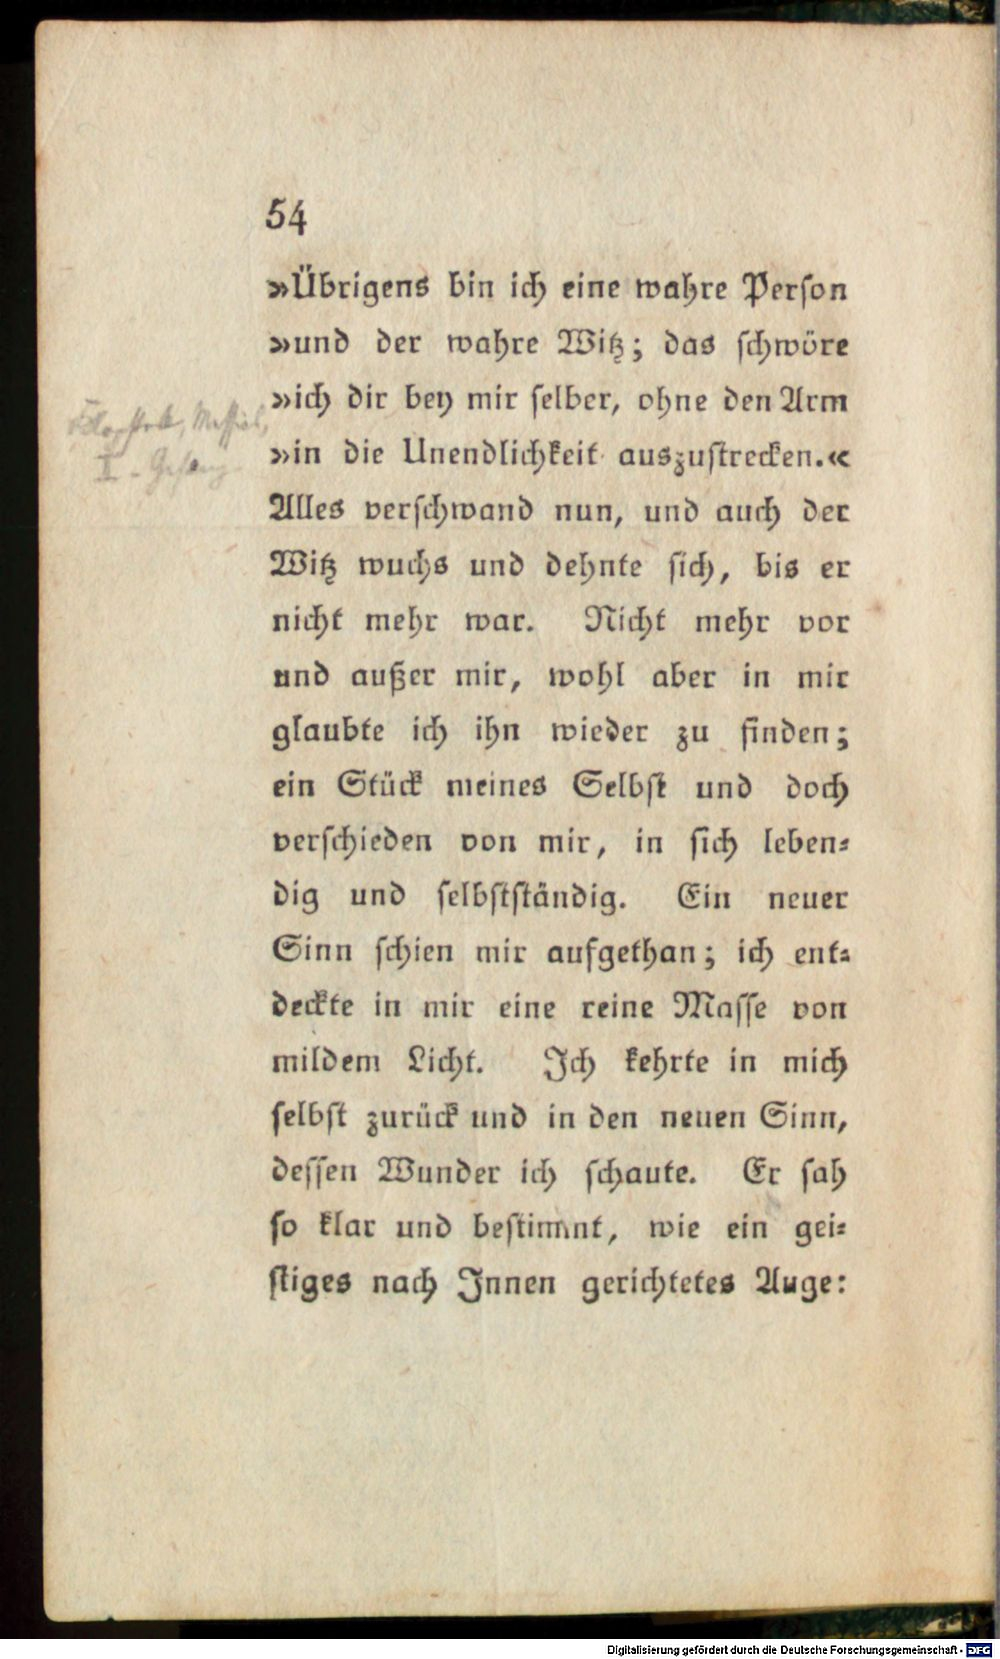 54
»Übrigens bin ich eine wahre Perſon
»und der wahre Witz; das ſchwöre
»ich dir bey mir ſelber, ohne den Arm
Klopstock, Messias,
I. Gesang
»in die Unendlichkeit auszuſtrecken.«
Alles verſchwand nun, und auch der
Witz wuchs und dehnte ſich, bis er
nicht mehr war. Nicht mehr vor
und außer mir, wohl aber in mir
glaubte ich ihn wieder zu finden;
ein Stück meines Selbſt und doch
verſchieden von mir, in ſich leben⸗
dig und ſelbſtſtändig. Ein neuer
Sinn ſchien mir aufgethan; ich ent⸗
deckte in mir eine reine Maſſe von
mildem Licht. Ich kehrte in mich
ſelbſt zurück und in den neuen Sinn,
deſſen Wunder ich ſchaute. Er ſah
ſo klar und beſtimmt, wie ein gei⸗
ſtiges nach Innen gerichtetes Auge:
Digitalisierung gefördert durch die Deutsche Forschungsgemeinschaft - DFG